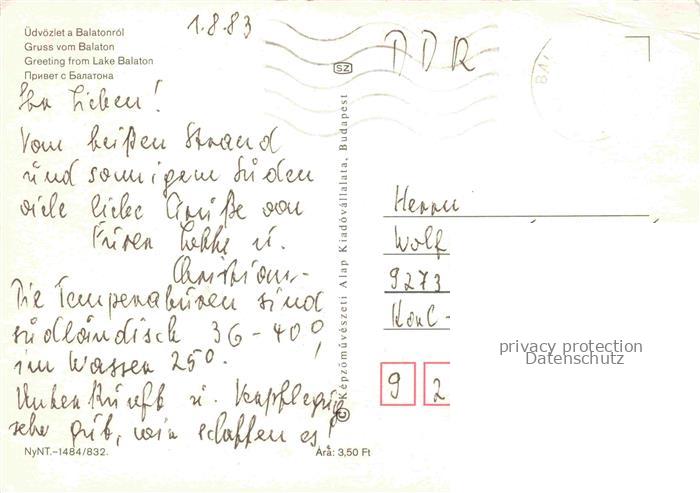 1.8.83
Üdvözlet a Balatonról
Gruss vom Balaton
Greeting from Lake Balaton
Привет с Балатона
Ihr Lieben!
Vom heißen Strand
und sonnigem Süden
viele liebe Grüße von
Euren u.
Christian.-
Die Temperaturen sind
südländisch 36-40°,
im Wasser 25°.
Unterkunft u. Verpflegung
sehr gut, wir schaffen es!
NyNT.-1484/832.
Ára: 3,50 Ft
SZ
© Képzőművészeti Alap Kiadóvállalata, Budapest
DDR
BA
Herrn
Wolf
9273
Karl-
9 2
privacy protection
Datenschutz